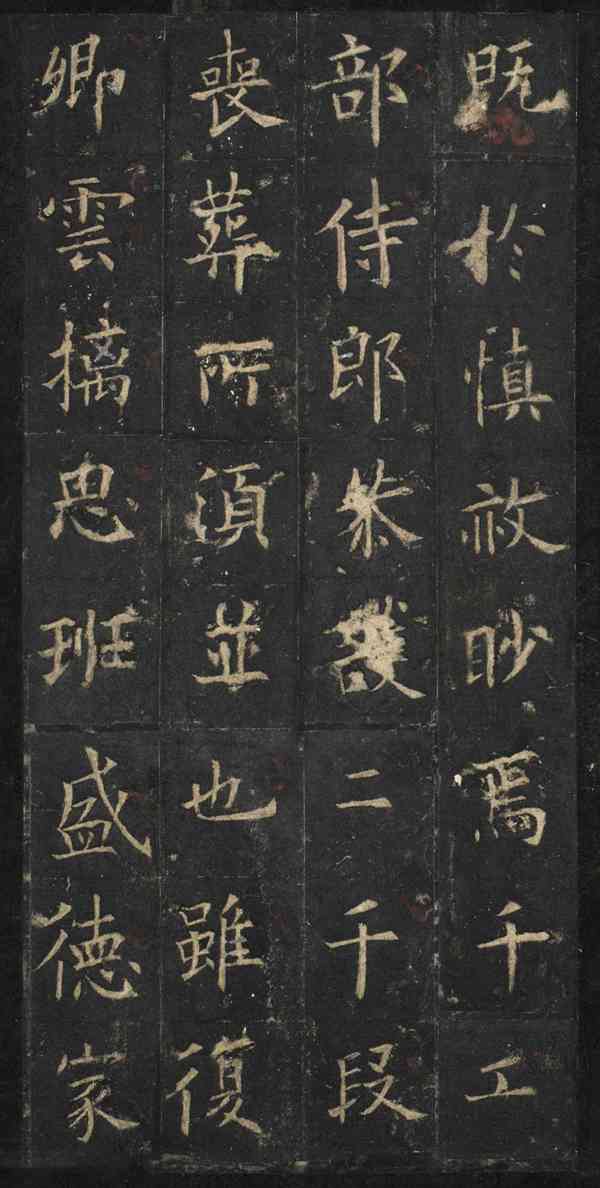 既於慎眇焉千工
部侍郎恭護二千段
喪葬所須並也雖復
卿雲摛思班盛德家